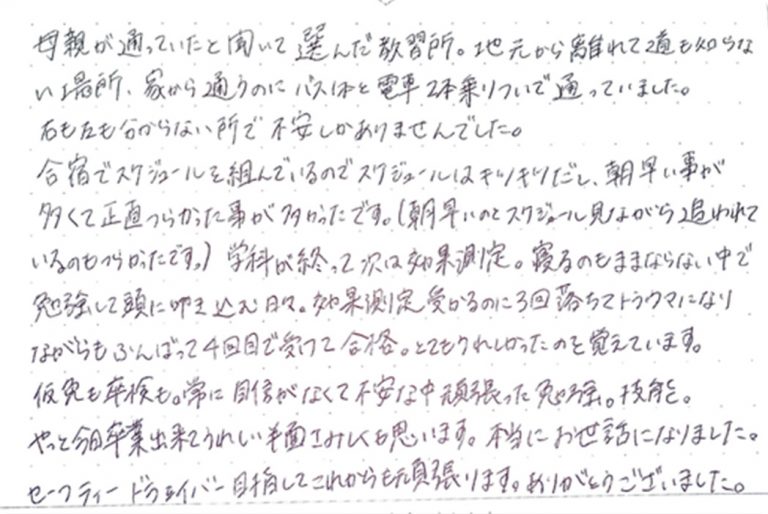 母親が通っていたと聞いて選んだ教習所。地元から離れて道も知らな
い場所、家から通うのにバス1本と電車2本乗りついで通っていました。
右も左も分からない所で不安しかありませんでした。
合宿でスケジュールを組んでいるのでスケジュールはギリギリだし、朝早い事が
多くて正直つらかった事が多かったです。(朝早いのとスケジュール見ながら追われて
いるのもつらかったです。)学科が終って次は効果測定。寝るのもままならない中で
勉強して頭に叩き込む日々。効果測定受かるのに3回落ちてトラウマになり
ながらもふんばって4回目で受けて合格。とてもうれしかったのを覚えています。
仮免も卒検も。常に自信がなくて不安な中頑張った勉強。技能と。
やっと今日卒業出来てうれしい半面さみしくも思います。本当にお世話になりました。
セーフティードライバー目指してこれからも頑張ります。ありがとうございました。